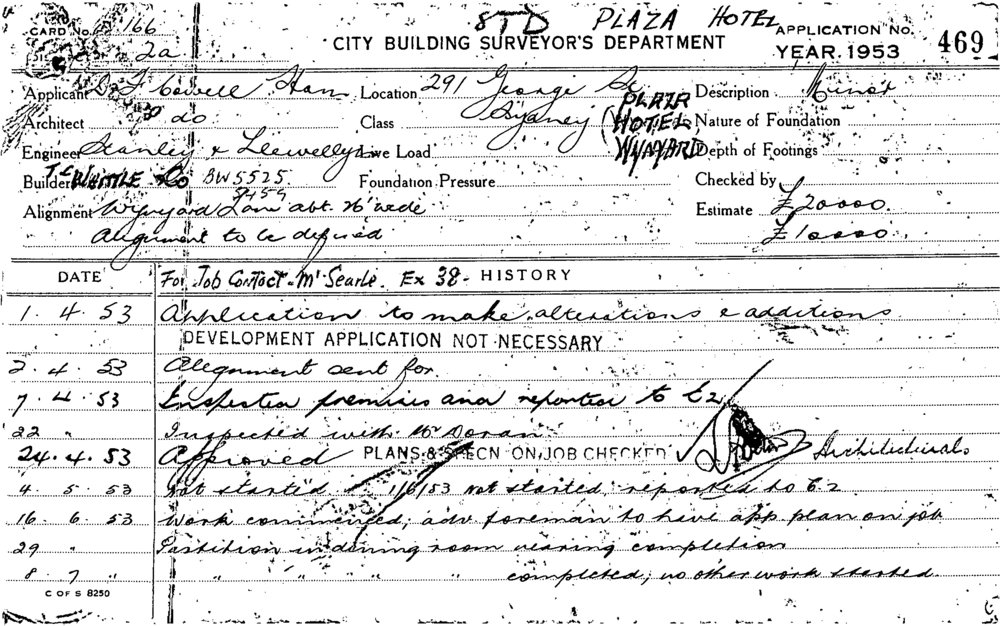 STD PLAZA HOTEL
CARD No. 166
2a
CITY BUILDING SURVEYOR'S DEPARTMENT
APPLICATION No.
YEAR 1953
469
Applicant D. T. Cowell Ham Location 291 George St Description Minor
Architect do. Class Sydney (PLAZA HOTEL WYNYARD Nature of Foundation
Engineer Stanley & Llewellyn Live Load Depth of Footings
Builder WHITTLE & Co BW5525 Foundation Pressure Checked by
Alignment Wynyard Lane abt. Estimate £20000.
Alignment to be defined £10000.
DATE For Job Contact Mr Searle. Ex 38 - HISTORY
1. 4. 53 Application to make alterations & additions
DEVELOPMENT APPLICATION NOT NECESSARY
2. 4. 53 Alignment sent for.
7. 4. 53 Inspected premises and reported to C2
22 " Inspected with Mr Doran
24. 4. 53 Approved PLANS & SPECN ON JOB CHECKED Architecturals
4. 5. 53 Not started 1/6/53 not started, reported to C2
16. 6. 53 Work commenced, adv. foreman to have app plan on job
29 " Partition in dining room nearing completion
8. 7 " " " " " completed, no other work started
C OF S 8250